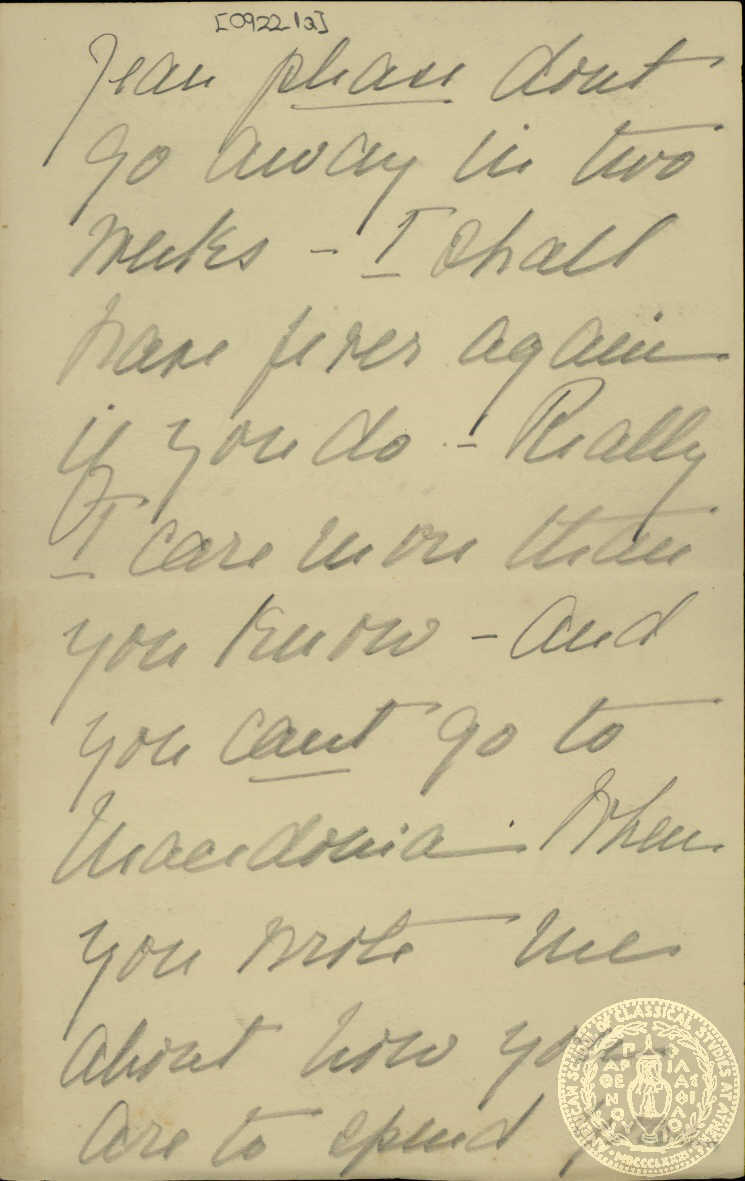 [0922 1a]
Jean please dont
go away in two
weeks - I shall
have fever again
if you do - Really
I care more than
you know - and
you cant go to
Macedonia. When
you wrote me
about how you
are to spend
AMERICAN SCHOOL OF CLASSICAL STUDIES AT ATHENS
ΠΑΡΘΕΝΟΥ ΦΙΛΑΣ ΦΙΛΟ
MDCCCLXXXI